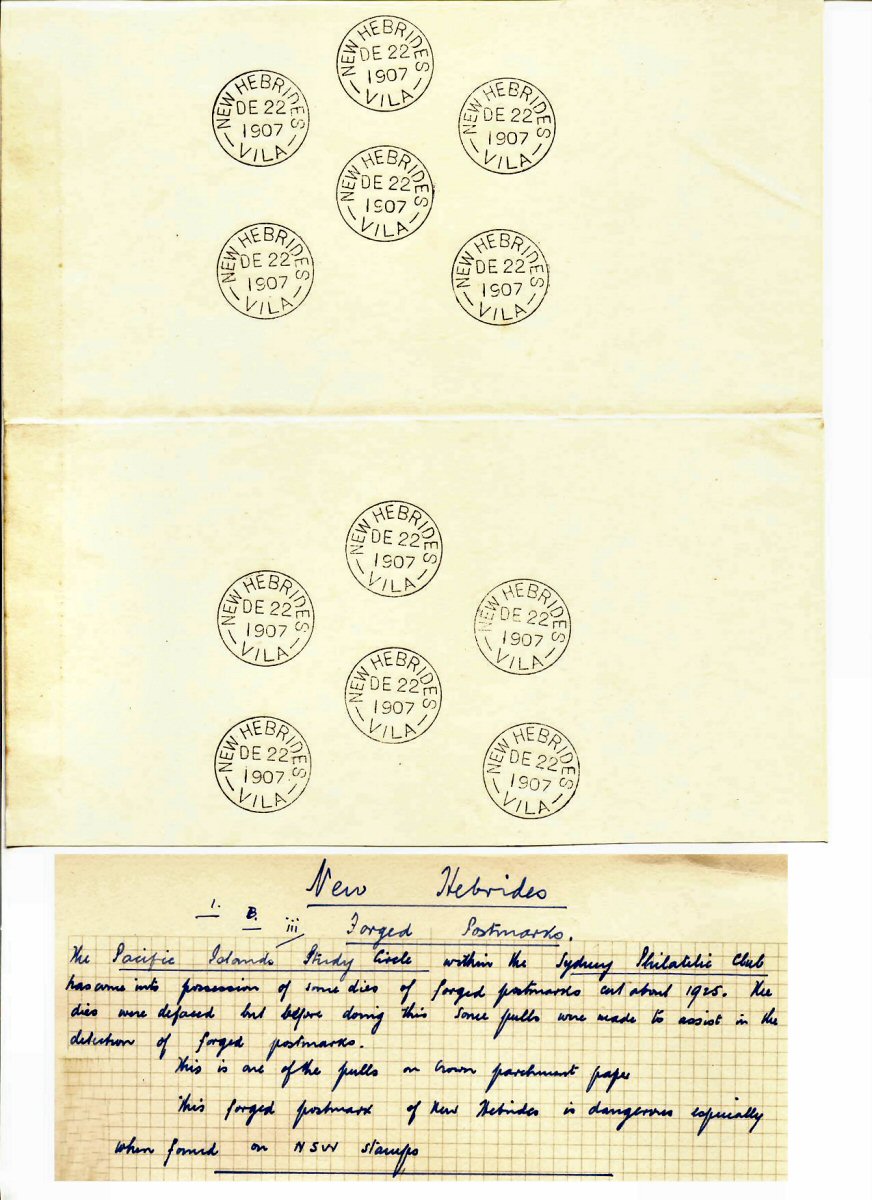 NEW HEBRIDES
DE 22
1907
VILA
NEW HEBRIDES
DE 22
1907
VILA
NEW HEBRIDES
DE 22
1907
VILA
NEW HEBRIDES
DE 22
1907
VILA
NEW HEBRIDES
DE 22
1907
VILA
NEW HEBRIDES
DE 22
1907
VILA
NEW HEBRIDES
DE 22
1907
VILA
NEW HEBRIDES
DE 22
1907
VILA
NEW HEBRIDES
DE 22
1907
VILA
NEW HEBRIDES
DE 22
1907
VILA
NEW HEBRIDES
DE 22
1907
VILA
NEW HEBRIDES
DE 22
1907
VILA
New Hebrides
1. B. iii Forged Postmarks.
The Pacific Islands Study Circle within the Sydney Philatelic Club
has come into possession of some dies of forged postmarks cut about 1925. The
dies were defaced but before doing this some pulls were made to assist in the
detection of forged postmarks.
This is one of the pulls on Crown parchment paper
This forged postmark of New Hebrides is dangerous especially
when found on NSW stamps